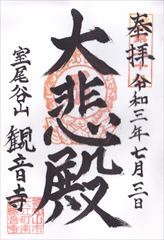 奉拝 令和三年七月三日
大悲殿
室尾谷山 観音寺